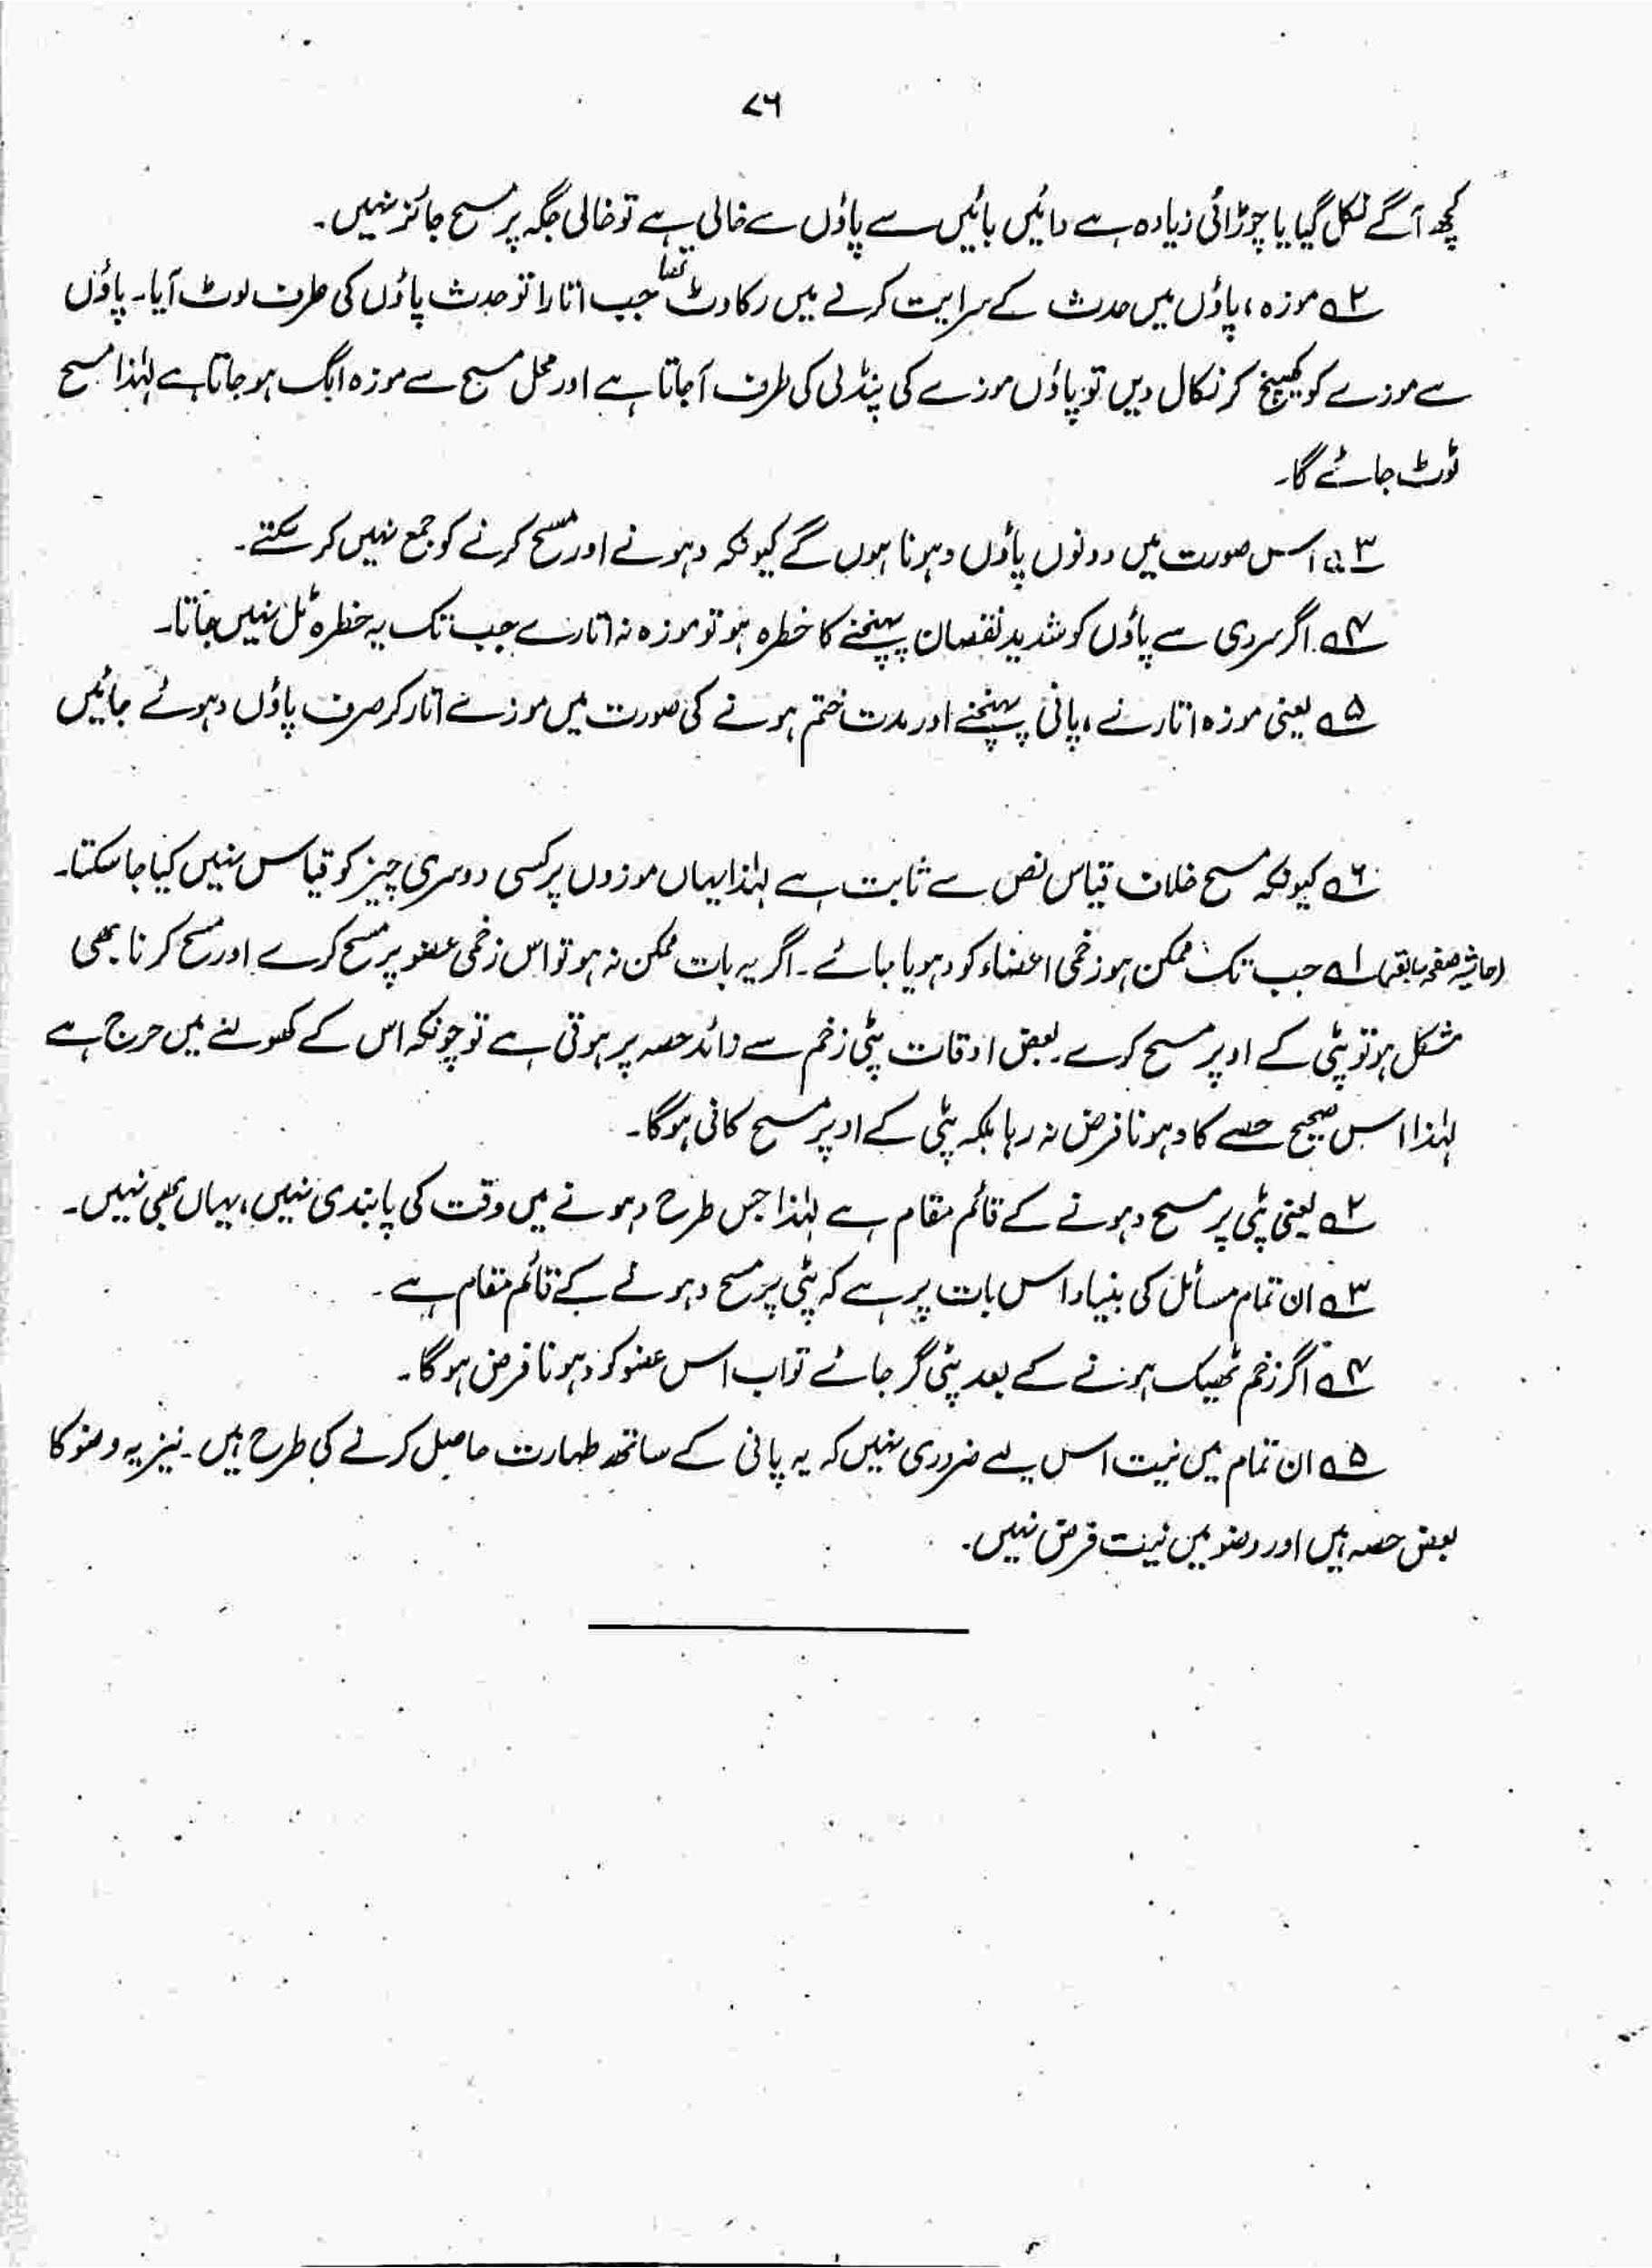 ۷۶
کچھ آگے نکل گیا یا چوڑائی زیادہ ہے دائیں بائیں سے پاؤں سے خالی ہے تو خالی جگہ پر مسح جائز نہیں۔
۲ے موزہ، پاؤں میں حدث کے سرایت کرنے میں رکاوٹ تھا جب اتارا تو حدث پاؤں کی طرف لوٹ آیا۔ پاؤں
سے موزے کو کھینچ کر نکال دیں تو پاؤں موزے کی پنڈلی کی طرف آجاتا ہے اور محل مسح سے موزہ الگ ہو جاتا ہے لہٰذا مسح
ٹوٹ جائے گا۔
۳ے اس صورت میں دونوں پاؤں دہونا ہوں گے کیونکہ دہونے اور مسح کرنے کو جمع نہیں کر سکتے۔
۴ے اگر سردی سے پاؤں کو شدید نقصان پہنچنے کا خطرہ ہو تو موزہ نہ اتارے جب تک یہ خطرہ ٹل نہیں جاتا۔
۵ے یعنی موزہ اتارنے، پانی پہنچنے اور مدت ختم ہونے کی صورت میں موزے اتار کر صرف پاؤں دہوئے جائیں
۶ے کیونکہ مسح خلاف قیاس نص سے ثابت ہے لہٰذا یہاں موزوں پر کسی دوسری چیز کو قیاس نہیں کیا جا سکتا۔
(حاشیہ صفحہ سابقہ) ۱ے جب تک ممکن ہو زخمی اعضاء کو دہویا جائے۔ اگر یہ بات ممکن نہ ہو تو اس زخمی عضو پر مسح کرے اور مسح کرنا بھی
مشکل ہو تو پٹی کے اوپر مسح کرے۔ بعض اوقات پٹی زخم سے زائد حصہ پر ہوتی ہے تو چونکہ اس کے کھولنے میں حرج ہے
لہٰذا اس صحیح حصے کا دہونا فرض نہ رہا بلکہ پٹی کے اوپر مسح کافی ہوگا۔
۲ے یعنی پٹی پر مسح دہونے کے قائم مقام ہے لہٰذا جس طرح دہونے میں وقت کی پابندی نہیں، یہاں بھی نہیں۔
۳ے ان تمام مسائل کی بنیاد اس بات پر ہے کہ پٹی پر مسح دہونے کے قائم مقام ہے۔
۴ے اگر زخم ٹھیک ہونے کے بعد پٹی گر جائے تو اب اس عضو کو دہونا فرض ہوگا۔
۵ے ان تمام میں نیت اس لیے ضروری نہیں کہ یہ پانی کے ساتھ طہارت حاصل کرنے کی طرح ہیں۔ نیز یہ وضو کا
بعض حصہ ہیں اور وضو میں نیت فرض نہیں۔